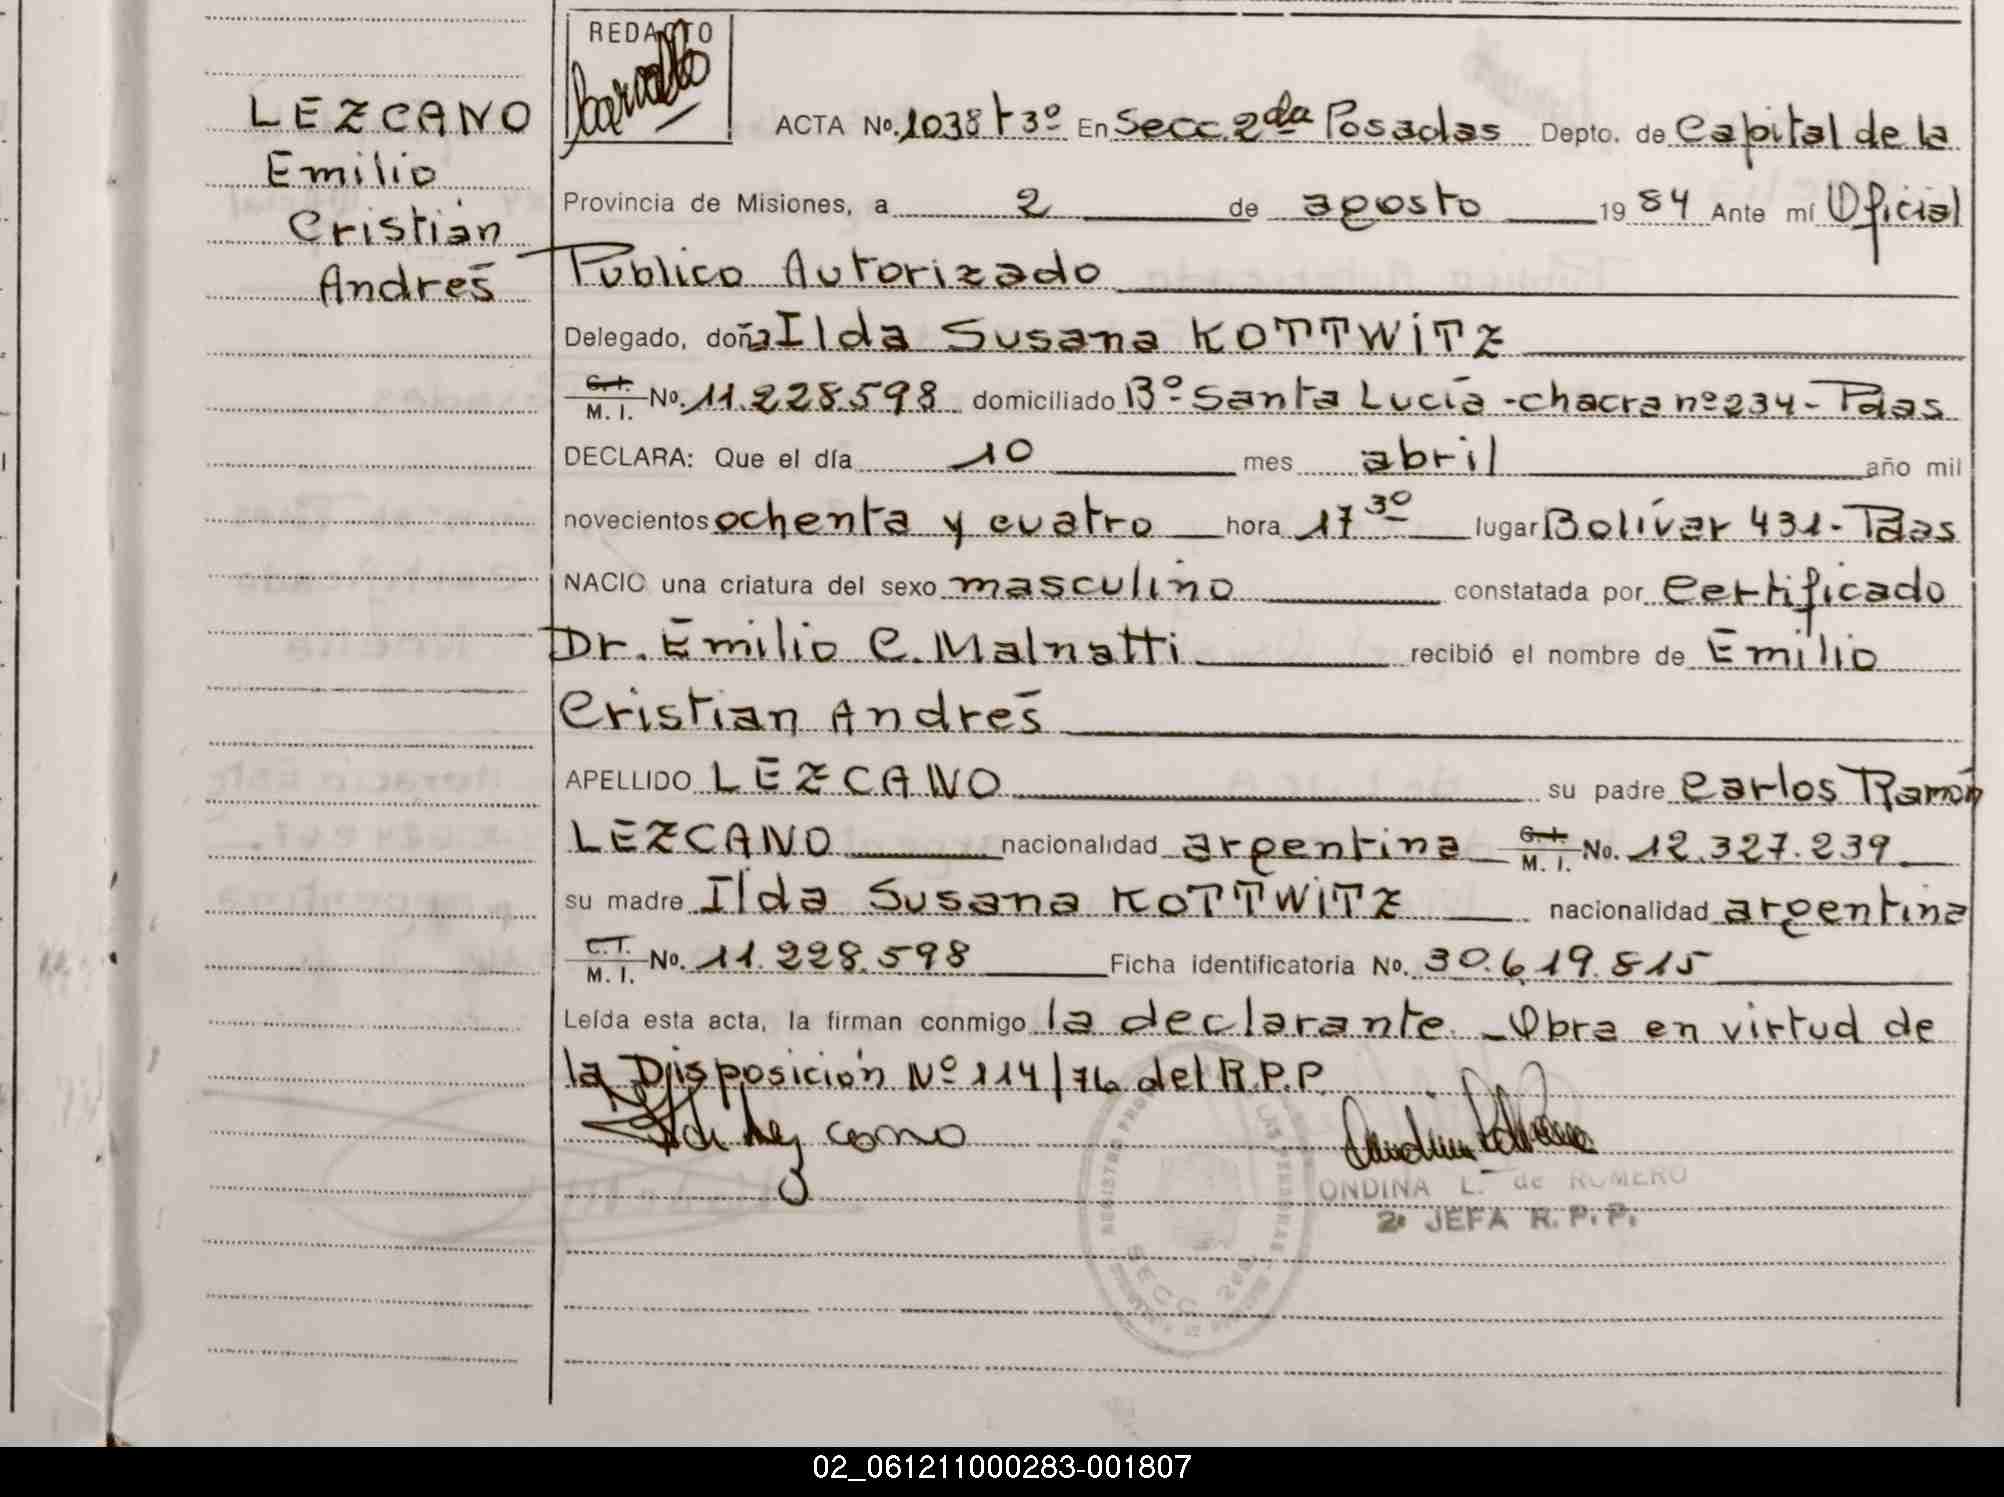 REDACTO
LEZCANO
Emilio
Cristián
Andrés
ACTA No. 1038 t 3º En Secc. 2da Posadas Depto. de Capital de la
Provincia de Misiones, a 2 de agosto 19 84 Ante mí Oficial
Público Autorizado
Delegado, doña Ilda Susana KOTTWITZ
C.I. M. I. No. 11.228.598 domiciliado Bº Santa Lucía - chacra nº 234 - Pdas
DECLARA: Que el día 10 mes abril año mil
novecientos ochenta y cuatro hora 17 30 lugar Bolívar 431 - Pdas
NACIO una criatura del sexo masculino constatada por Certificado
Dr. Emilio C. Malnatti recibió el nombre de Emilio
Cristian Andrés
APELLIDO LEZCANO su padre Carlos Ramón
LEZCANO nacionalidad argentina C.I. M. I. No. 12.327.239
su madre Ilda Susana KOTTWITZ nacionalidad argentina
C.I. M. I. No. 11.228.598 Ficha identificatoria No. 30.619.815
Leída esta acta, la firman conmigo la declarante. - Obra en virtud de
la Disposición Nº 114/76 del R.P.P.
ONDINA L. de ROMERO
2º JEFA R. P. P.
02_061211000283-001807